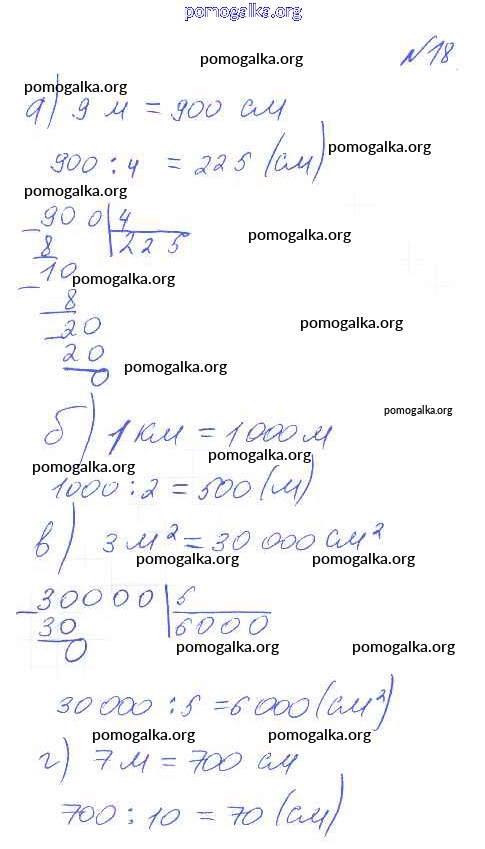 pomogalka.org
№18
pomogalka.org
pomogalka.org
а) 9 м = 900 см
pomogalka.org
900 : 4 = 225 (см)
pomogalka.org
900 4
pomogalka.org
8 225
10
pomogalka.org
8
pomogalka.org
20
20
pomogalka.org
0
pomogalka.org
б) 1 км = 1000 м
pomogalka.org
pomogalka.org
1000 : 2 = 500 (м)
в) 3 м² = 30 000 см²
pomogalka.org pomogalka.org
30000 5
30 6000
0
pomogalka.org pomogalka.org
30 000 : 5 = 6 000 (см²)
pomogalka.org pomogalka.org
г) 7 м = 700 см
700 : 10 = 70 (см)